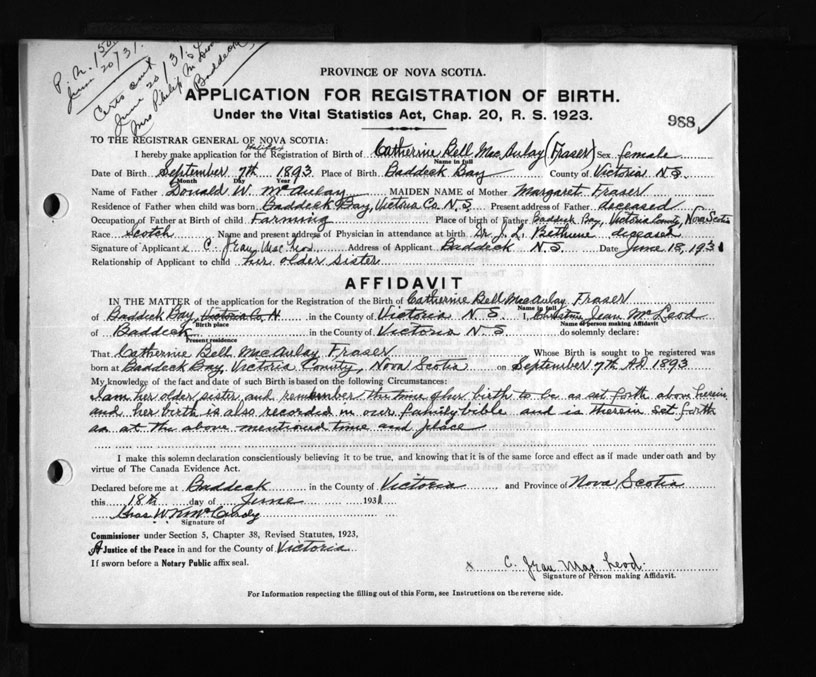 P. N. 1 50
June 20/31.
Certs sent
June 20/31. to
Mrs Philip M.
Baddeck
PROVINCE OF NOVA SCOTIA.
APPLICATION FOR REGISTRATION OF BIRTH.
Under the Vital Statistics Act, Chap. 20, R. S. 1923.
988 ✓
TO THE REGISTRAR GENERAL OF NOVA SCOTIA:
Halifax
I hereby make application for the Registration of Birth of Catherine Bell MacAulay (Fraser) Sex female
Name in full
Date of Birth September 7th 1893 Place of Birth Baddeck Bay County of Victoria N.S.
Month Day Year
Name of Father Donald W. McAulay MAIDEN NAME of Mother Margaret Fraser
Residence of Father when child was born Baddeck Bay, Victoria Co. N.S. Present address of Father deceased
Occupation of Father at Birth of child Farming Place of birth of Father Baddeck Bay, Victoria County, Nova Scotia
Race Scotch Name and present address of Physician in attendance at birth Dr. J. L. Bethune diseased
Signature of Applicant x C. Jean MacLeod Address of Applicant Baddeck N.S. Date June 18, 1931
Relationship of Applicant to child her older sister
AFFIDAVIT
IN THE MATTER of the application for the Registration of the Birth of Catherine Bell MacAulay Fraser
Name in full
of Baddeck Bay, Victoria Co. N in the County of Victoria N.S. I, Christine Jean McLeod
Birth place Name of person making Affidavit
of Baddeck in the County of Victoria N.S. do solemnly declare:
Present residence
That Catherine Bell MacAulay Fraser Whose Birth is sought to be registered was
born at Baddeck Bay, Victoria County, Nova Scotia on September 7th A.D. 1893
My knowledge of the fact and date of such Birth is based on the following Circumstances:
I am her older sister and remember the time of her birth to be as set forth above herein
and her birth is also recorded in our family bible and is therein set forth
as at the above mentioned time and place
I make this solemn declaration conscientiously believing it to be true, and knowing that it is of the same force and effect as if made under oath and by
virtue of The Canada Evidence Act.
Declared before me at Baddeck in the County of Victoria and Province of Nova Scotia
this 18th day of June 1931
Chas. W. K. McCurdy
Signature of
Commissioner under Section 5, Chapter 38, Revised Statutes, 1923,
A Justice of the Peace in and for the County of Victoria
If sworn before a Notary Public affix seal.
x C. Jean MacLeod
Signature of Person making Affidavit.
For Information respecting the filling out of this Form, see Instructions on the reverse side.